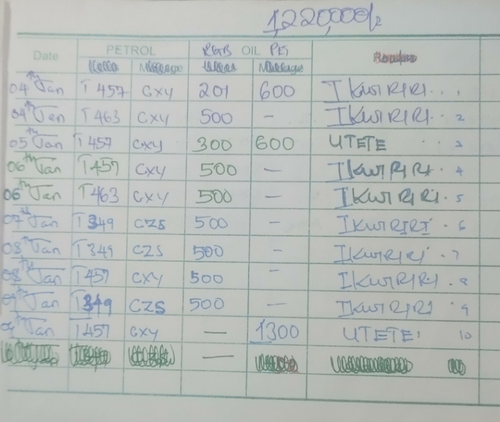 1,220,000/=
PETROL R&B OIL PET
Date
04th Jan T 457 CXY 201 600 IKWIRIRI 1
04th Jan T 463 CXY 500 - IKWIRIRI 2
05th Jan T 457 CXY 300 600 UTETE 3
06th Jan T 457 CXY 500 - IKWIRIRI 4
06th Jan T 463 CXY 500 - IKWIRIRI 5
07th Jan T 349 CZS 500 - IKWIRIRI 6
08th Jan T 349 CZS 500 - IKWIRIRI 7
08th Jan T 457 CXY 500 - IKWIRIRI 8
09th Jan T 349 CZS 500 - IKWIRIRI 9
09th Jan T 457 CXY - 1300 UTETE 10
-